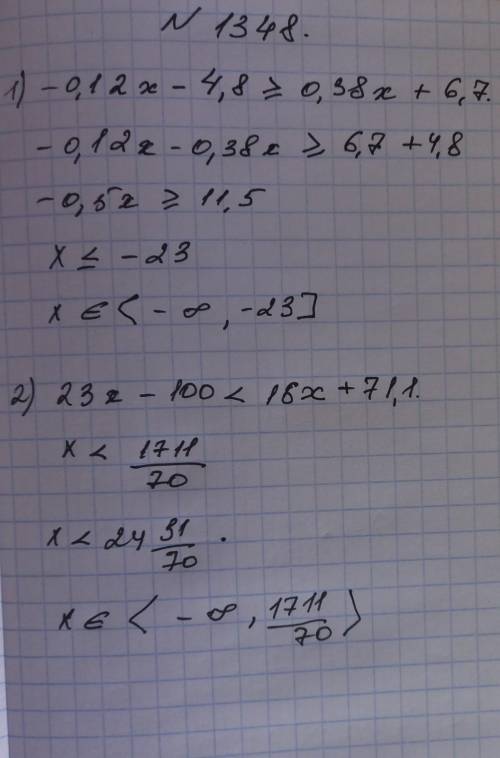 N 1348.
1) -0,12x - 4,8 ≥ 0,38x + 6,7.
-0,12x - 0,38x ≥ 6,7 + 4,8
-0,5x ≥ 11,5
x ≤ -23
x ∈ ⟨-∞, -23]
2) 23x - 100 < 16x + 71,1.
x < 1711/70
x < 24 31/70.
x ∈ ⟨-∞, 1711/70⟩